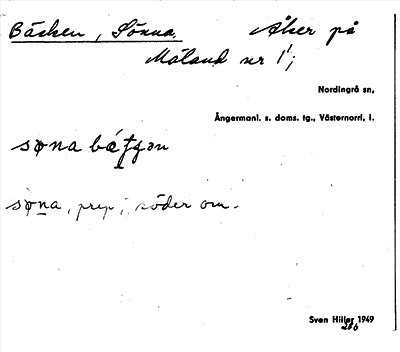 Bäcken, Sönna.  Åker på
Måland nr 1¹;
Nordingrå sn,
Ångermanl. s. doms. tg., Västernorrl, l.
søna
søna, prep; söder om.
Sven Hiller 1949